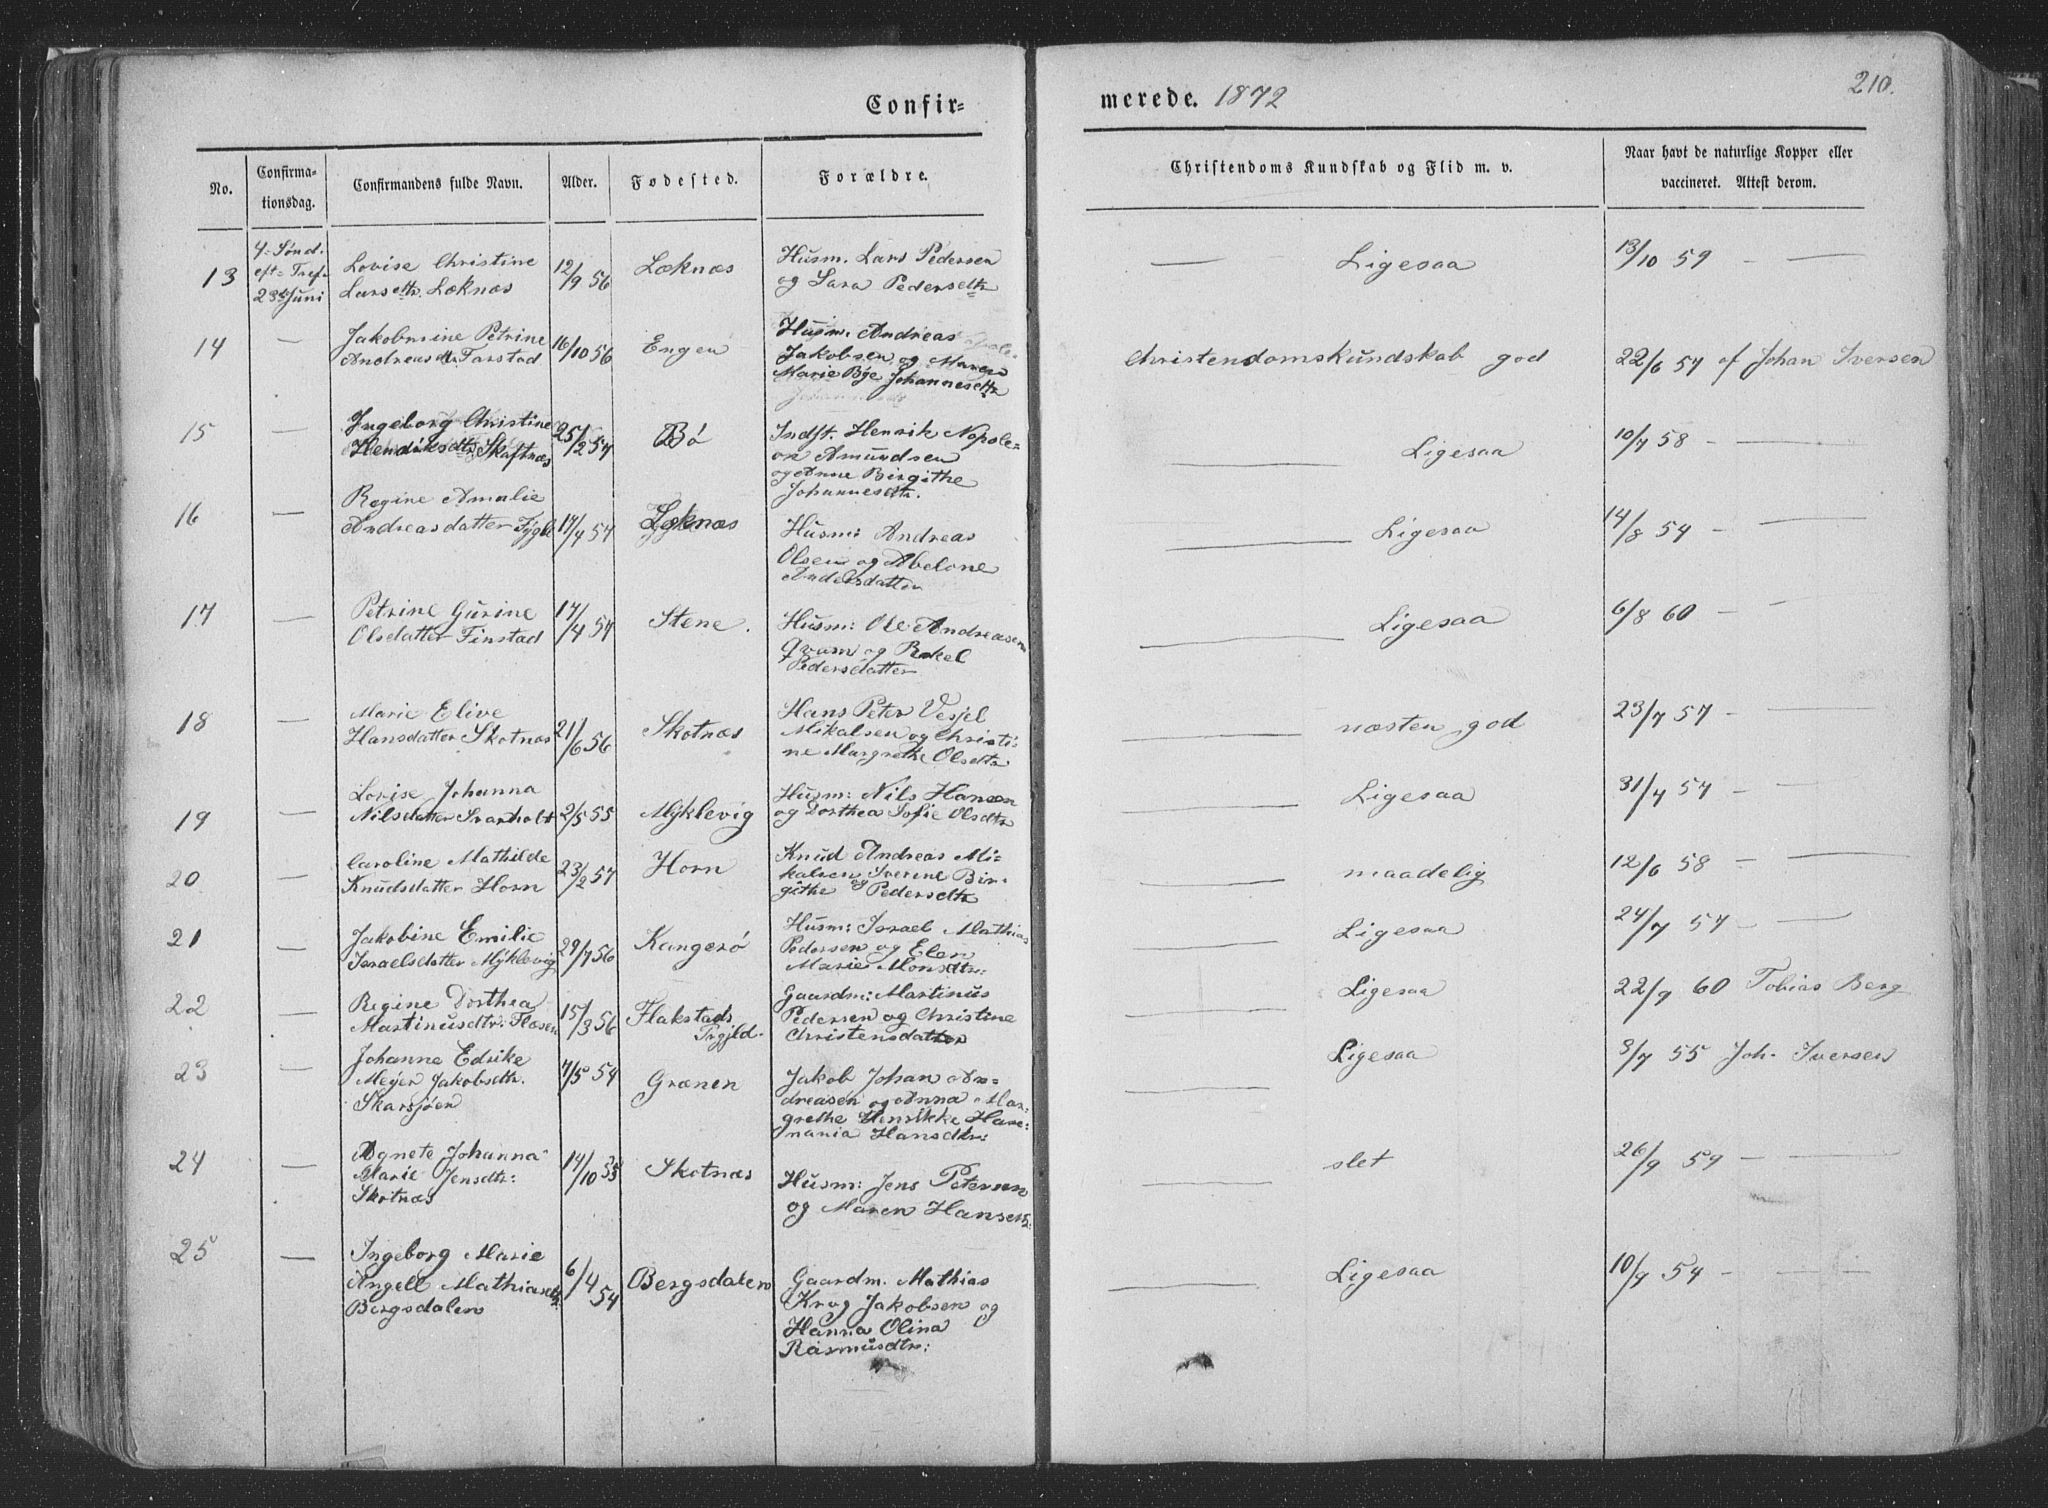 Confir=
merede. 1872
210.
No.
Confirma-
tionsdag.
Confirmandens fulde Navn.
Alder.
Fødested.
Forældre.
Christendoms Kundskab og Flid m. v.
Naar havt de naturlige Kopper eller
vaccineret. Attest derom.
13
4= Sønd.
eft= Tref=
23de Juni
Lovise Christine
Larsdtr. Læknæs
12/9 56
Læknæs
Husm. Lars Pedersen
og Sara Pedersdtr
— Ligesaa
13/10 59 — —
14
—
Jakobmine Petrine
Andreasdtr Farstad
16/10 56
Engen
Husm. Andreas
Jakobsen og Maren
Marie Bye Johannesdtr
Christendomskundskab god
22/6 57 af Johan Iversen
15
—
Ingeborg Christine
Hendriksdtr Skaftnæs
25/2 57
Bø
Indst. Henrik Napole=
on Amundsen
og Anne Birgithe
Johannesdtr.
— Ligesaa
10/7 58 — —
16
—
Regine Amalie
Andreasdatter Fygle
17/4 57
Læknæs
Husm: Andreas
Olsen og Abelone
Andersdatter
— Ligesaa
14/8 57 — —
17
—
Petrine Gurine
Olsdatter Finstad
17/4 57
Stene.
Husm: Ole Andreasen
Qvam og Rakel
Pedersdatter
— Ligesaa
6/8 60 — —
18
—
Marie Elive
Hansdatter Skotnæs
21/6 56
Skotnæs
Hans Peter Vesjel
Mikalsen og Christi=
ne Margrethe Olsdtr
— næsten god
23/7 57 — —
19
—
Lovise Johanna
Nilsdatter Svarholt
2/5 55
Myklevig
Husm: Nils Hansen
og Dorthea Sofie Olsdtr
— Ligesaa
31/7 57 — —
20
—
Caroline Mathilde
Knudsdatter Horn
23/2 57
Horn
Knud Andreas Mi=
kalsen Iverine Bir=
githe og Pedersdtr
— maadelig
12/6 58 — —
21
—
Jakobine Emilie
Israelsdatter Myklevig
29/7 56
Kangerø
Husm: Israel Mathias
Pedersen og Elen
Marie Monsdtr:
— Ligesaa
24/7 57 — —
22
—
Regine Dorthea
Martinusdtr: Flæsen
15/3 56
Flakstads
Prgjld.
Gaardm: Martinus
Pedersen og Christine
Christensdatter
— Ligesaa
22/9 60 Tobias Berg
23
—
Johanne Edrike
Meyer Jakobsdtr.
Skarsjøen
7/5 54
Grænen
Jakob Johan An=
dreasen og Anna Mar=
grethe Henrikke Hare=
nania Hansdtr:
— Ligesaa
3/7 55 Joh. Iversen
24
—
Agnete Johanna
Marie Jensdtr:
Skotnæs
14/10 55
Skotnæs
Husm: Jens Petersen
og Maren Hansdtr:
— slet
26/9 59 — —
25
—
Ingeborg Marie
Angell Mathiasdtr
Bergsdalen
6/4 54
Bergsdalen
Gaardm. Mathias
Krog Jakobsen og
Hanna Olina
Rasmusdtr:
— Ligesaa
10/9 54 — —